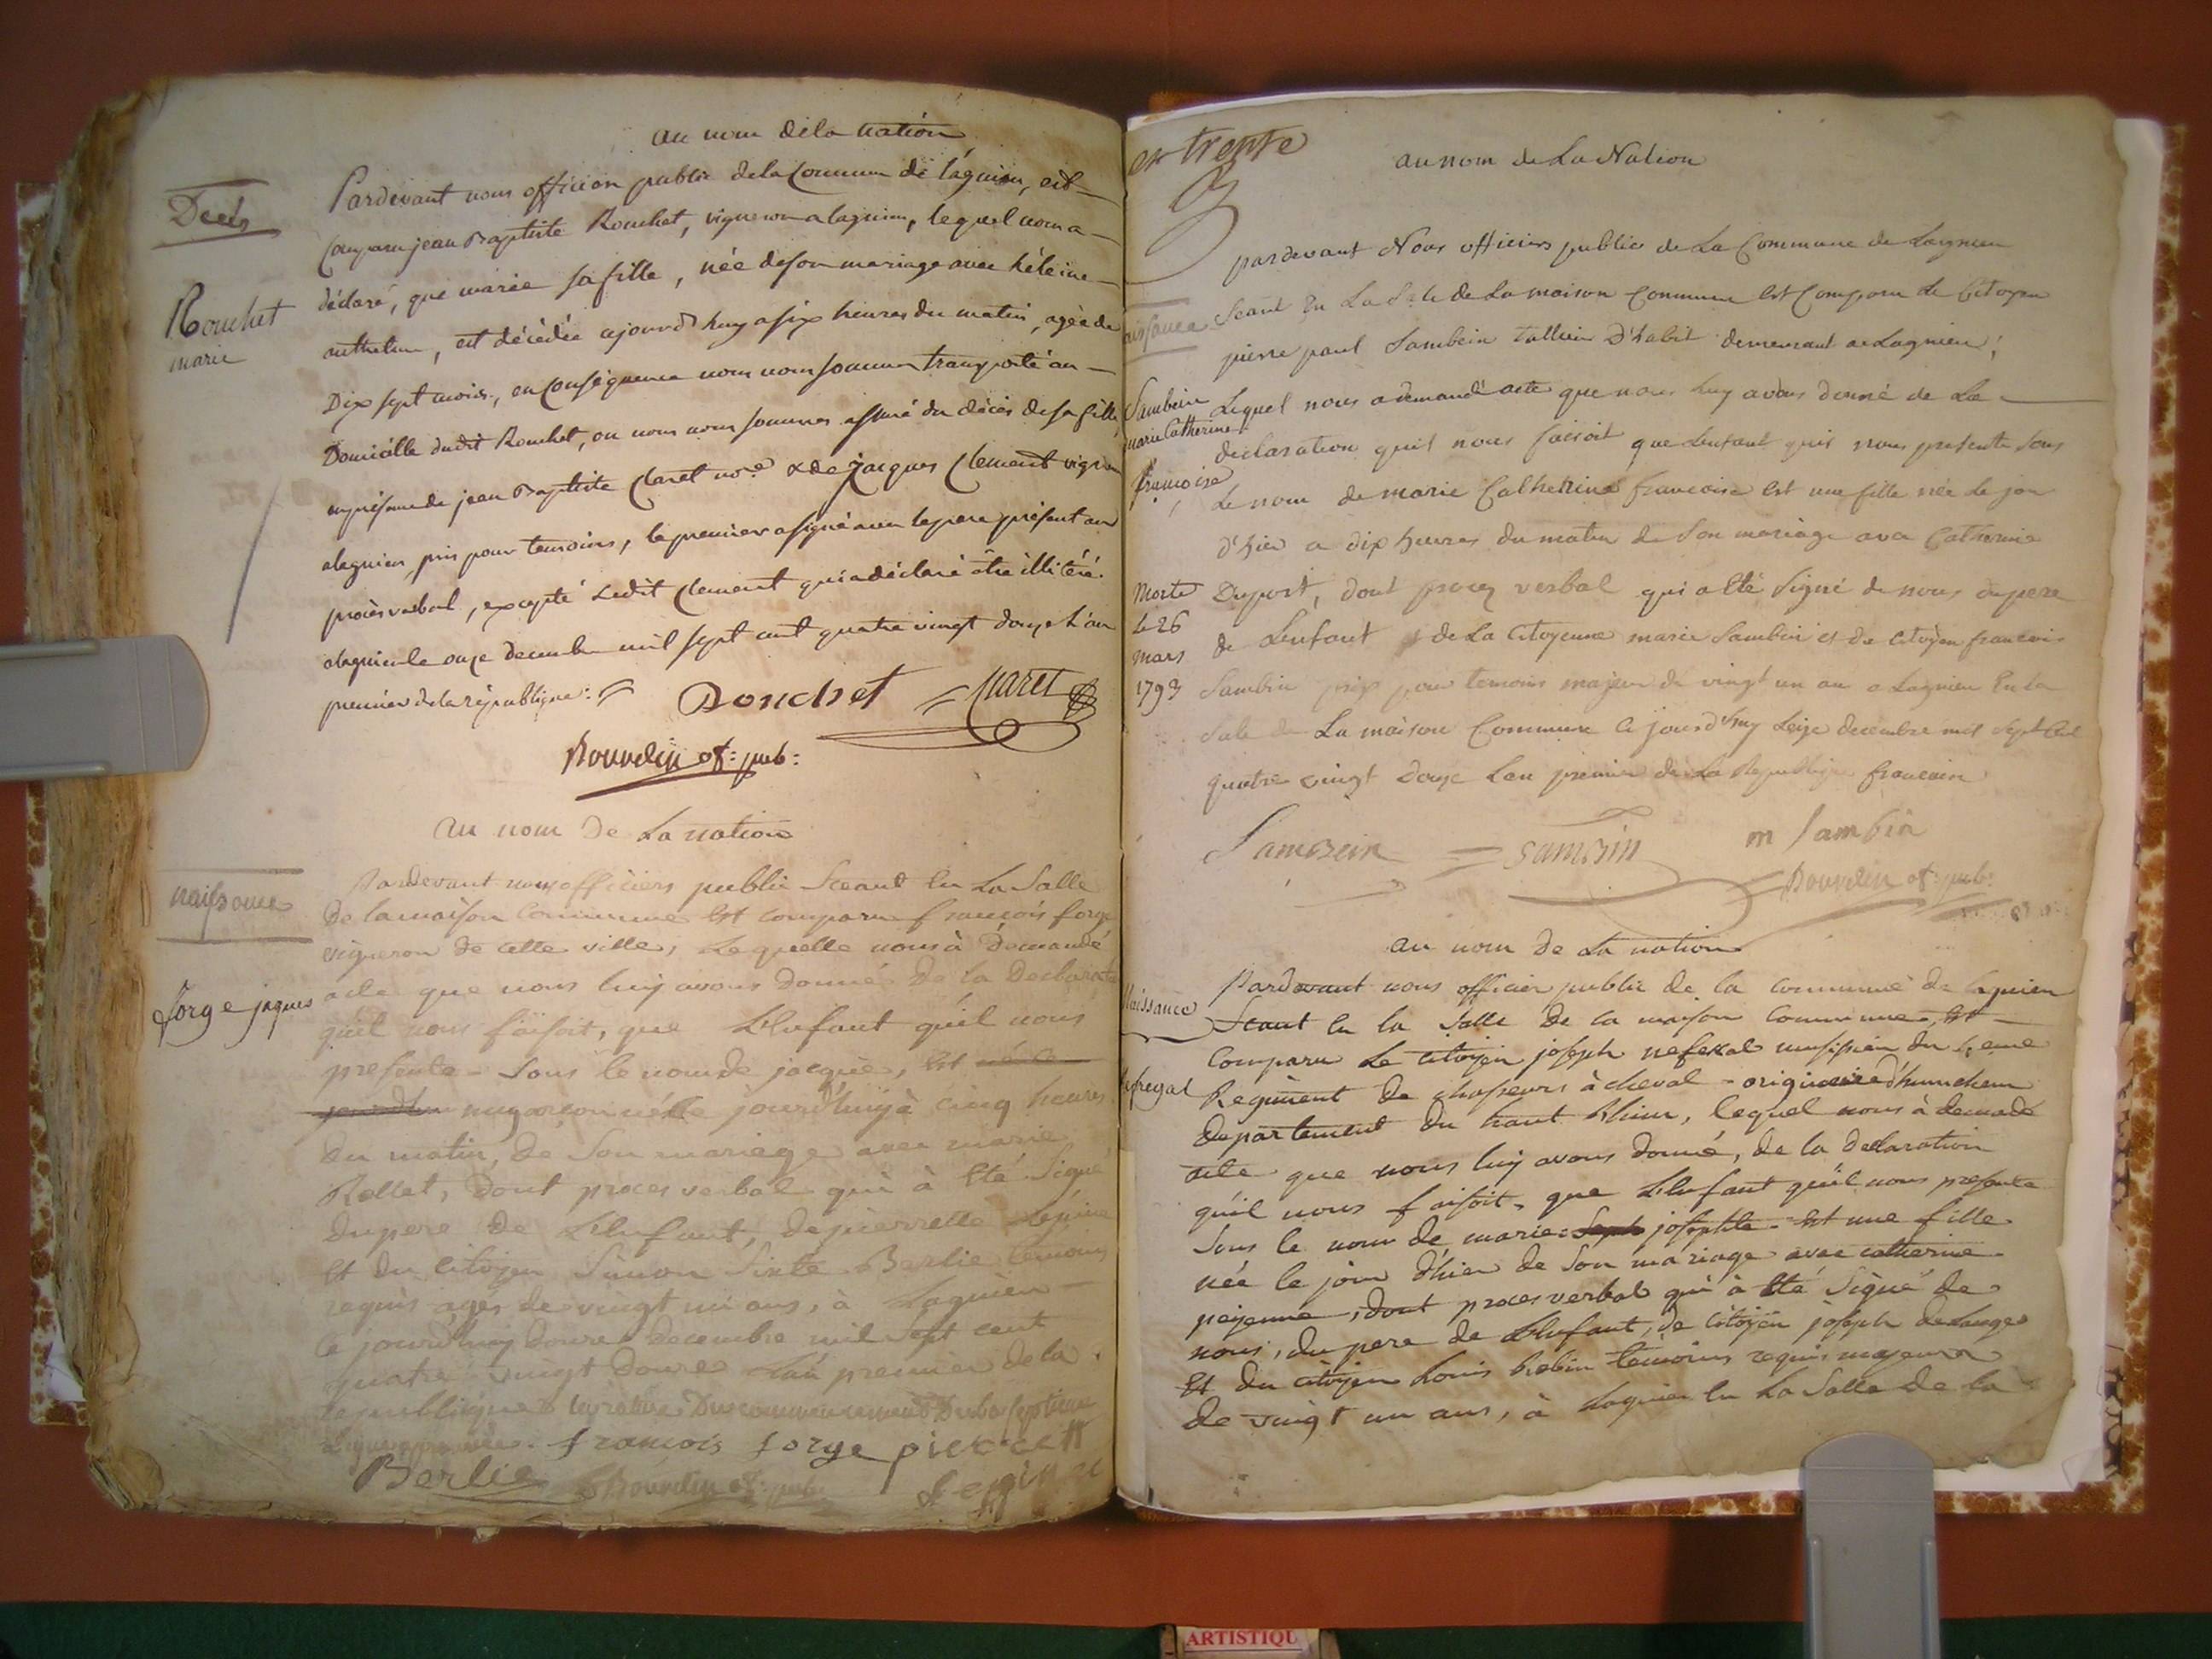 au nom dela nation
Decés
Pardevant nous officier public dela Commune de lagnieu, est
Comparu jean Baptiste Rouchet, vigneron a lagnieu, lequel nous a
Rouchet
marie
déclaré, que marie sa fille, née deson mariage avec héleine
, est décédée ajourd'huy a six heures du matin, agée de
Dix sept mois, en Conséquence nous nous sommes transporté au
Domicille dudit Rouchet, ou nous nous sommes assuré du décès desa fille
en présence de jean Baptiste Claret no.re & de Jacques Clement vigneron
alagnieu, pris pour temoins, le premier a signé avec le pere présent au
procès verbal, excepté Ledit Clement qui a déclaré être illiteré.
alagnieu le onze decembre mil sept cent quatre vingt douze l'an
premier dela république.
Rouchet Claret
Bourdin of: pub:
au nom De La nation
naissance
Pardevant nous officiers public Sceant En La Salle
De la maison Commune Est comparu françois forge
vigneron de cette ville, Lequelle nous à Demandé
forge jaques
acte que nous luy avons donné De la Declarat
qu'il nous faisoit, que L'Enfant qu'il nous
presente Sous le nom de jacque, Est née ce
jourdhu un garçon né le jourd'huÿ à cinq heures
Du matin, De Son mariage avec marie
Rollet, Dont proces verbal qui à Eté Signé
Du pere De L'Enfant, De pierrette
Et Du Citoÿen Simon Sixte Berlie temoins
requis agés de vingt un ans, à Lagnieu
Ce jourd'huy Douze Decembre mil Sept cent
quatre vingt Douze L'an premier De la
republique
françois forge pierrett
Berlie Bourdin of: pub:
et trente
au nom de La Nation
pardevant Nous officiers public de La Commune de Lagnieu
naissance
Seant En La Sale de La maison Commune Est Comparu le Citoyen
pierre paul Sambein tallieur D'habit demeurant a Lagnieu;
Sambein
marie Catherine
françoise
Lequel nous a demandé acte que nous Luy avons donné de La
declaration quil nous faisoit que Lenfant quil nous presente Sous
Le nom de marie Catherine francoise Est une fille née le jour
d'hier a dix heures du matin de Son mariage avec Catherine
Morte
le 26
mars
1793
Duport, dont procez verbal qui a Eté Signé de nous du pere
de Lenfant de La Citoyenne marie Sambin et du Citoÿen francois
Sambin prix pour temoins majeur de vingt un an a Lagnieu En La
Sale de La maison Commune Ce jourd'huy Seize decembre mil Sept Cent
quatre vingt douze Lan premier de La Republique francaise
Sambein Sambin m Sambin
Bourdin of: pub:
au nom de La nation
Naissance
Pardevant nous officier public de la Commune de lagnieu
Sceant En la Salle De la maison Commune, Est
Comparu Le Citoÿen joseph nefexal musisien du
Regiment De chasseurs à cheval originaire
Departement Du haut Rhin, lequel nous à demadé
acte que nous luy avons donné, de la declaration
qu'il nous faisoit, que L'Enfant qu'il nous presente
Sous le nom de marie Seph josephte Est une fille
née le jour d'hier de Son mariage avec catherine
, Dont proces verbal qui à Eté Signé de
nous, du pere de L'Enfant, de Citoÿen joseph
Et Du Citoyen Louis temoins requis majeurs
De vingt un ans, à Lagnieu En La Salle de la
ARTISTIQU